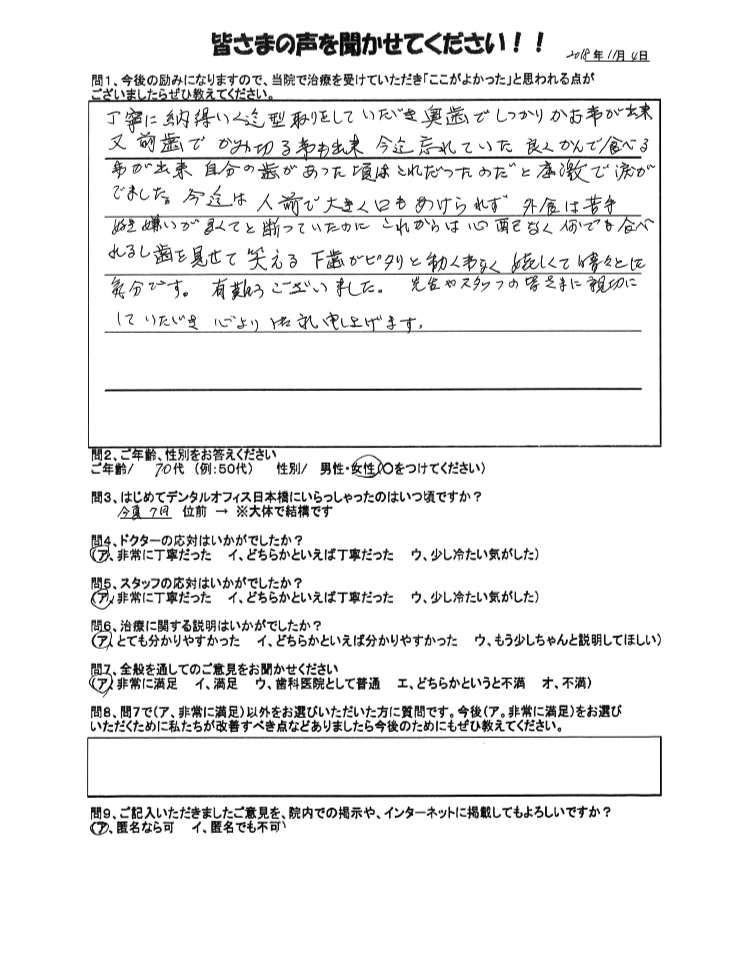 皆さまの声を聞かせてください！！
2018年11月4日
問1、今後の励みになりますので、当院で治療を受けていただき「ここがよかった」と思われる点が
ございましたらぜひ教えてください。
丁寧に納得いく迄型取りをしていただき奥歯でしっかりかむ事が出来
又前歯でかみ切る事も出来 今迄忘れていた 良くかんで食べる
事が出来 自分の歯があった頃はこれだったのだと感激で涙が
でました。今迄は人前で大きく口もあけられず 外食は苦手
好き嫌いが多くてと断っていたのに これからは心配なく何でも食べ
れるし歯を見せて笑える 下歯がピタリと動く事なく 嬉しくて晴々とした
気分です。 有難うございました。 先生やスタッフの皆さまに親切に
していただき 心より御礼申し上げます。
問2、ご年齢、性別をお答えください
ご年齢/ 70代 (例:50代) 性別/ 男性・女性(○をつけてください)
問3、はじめてデンタルオフィス日本橋にいらっしゃったのはいつ頃ですか？
今夏 7月 位前 → ※大体で結構です
問4、ドクターの応対はいかがでしたか？
(ア、非常に丁寧だった イ、どちらかといえば丁寧だった ウ、少し冷たい気がした)
問5、スタッフの応対はいかがでしたか？
(ア、非常に丁寧だった イ、どちらかといえば丁寧だった ウ、少し冷たい気がした)
問6、治療に関する説明はいかがでしたか？
(ア、とても分かりやすかった イ、どちらかといえば分かりやすかった ウ、もう少しちゃんと説明してほしい)
問7、全般を通してのご意見をお聞かせください
(ア、非常に満足 イ、満足 ウ、歯科医院として普通 エ、どちらかというと不満 オ、不満)
問8、問7で(ア、非常に満足)以外をお選びいただいた方に質問です。今後(ア。非常に満足)をお選び
いただくために私たちが改善すべき点などありましたら今後のためにもぜひ教えてください。
問9、ご記入いただきましたご意見を、院内での掲示や、インターネットに掲載してもよろしいですか？
(ア、匿名なら可 イ、匿名でも不可)